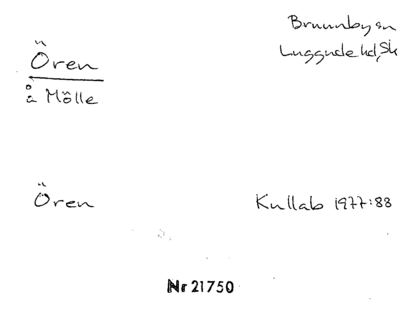 Ören
å Mölle
Brunnby sn
Luggude hd, Sk
Ören
Kullab 1977:88
Nr 21750